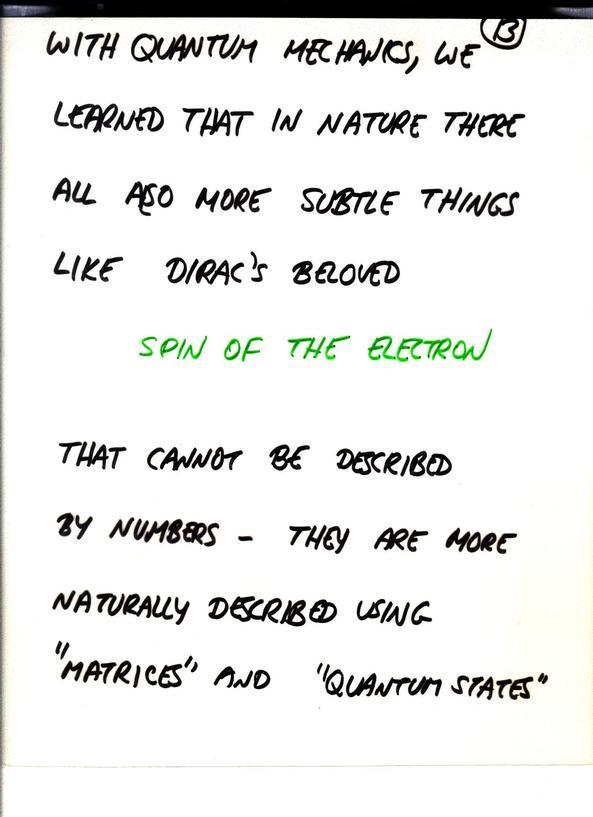 13
WITH QUANTUM MECHANICS, WE
LEARNED THAT IN NATURE THERE
ALL ALSO MORE SUBTLE THINGS
LIKE DIRAC'S BELOVED
SPIN OF THE ELECTRON
THAT CANNOT BE DESCRIBED
BY NUMBERS - THEY ARE MORE
NATURALLY DESCRIBED USING
"MATRICES" AND "QUANTUM STATES"